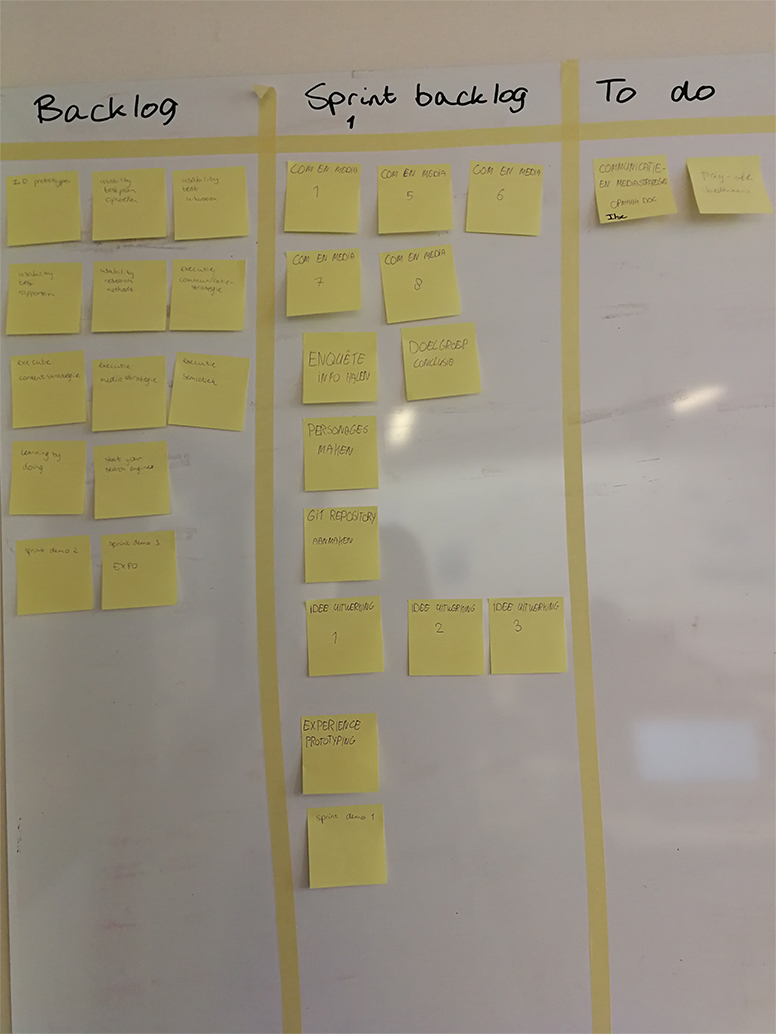 Backlog
Sprint backlog
1
To do
usability
testplan
usability
test
usability
test
rapporteren
usability
research
methods
executie
communicatie-
strategie
executie
contentstrategie
executie
mediastrategie
executie
semiotiek
learning by
doing
start your
search engines
sprint demo 2
sprint demo 3
EXPO
COM EN MEDIA
1
COM EN MEDIA
5
COM EN MEDIA
6
COM EN MEDIA
7
COM EN MEDIA
8
ENQUÊTE
INFO HALEN
DOELGROEP
CONCLUSIE
PERSONAGES
MAKEN
GIT REPOSITORY
AANMAKEN
IDEE UITWERKING
1
IDEE UITWERKING
2
IDEE UITWERKING
3
EXPERIENCE
PROTOTYPING
sprint demo 1
COMMUNICATIE-
EN MEDIASTRATEGIE
OPMAAK DOC